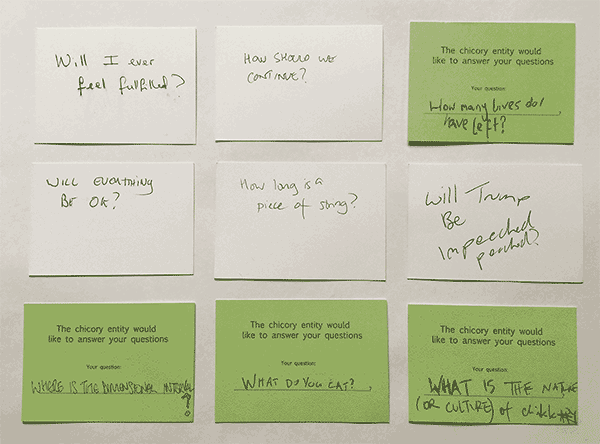 Will I ever
feel fulfilled?
HOW SHOULD WE
CONTINUE?
The chicory entity would
like to answer your questions
Your question:
How many lives do I
have left?
WILL EVERYTHING
BE OK?
How long is a
piece of string?
Will Trump
Be
Impeeched
peeched?
The chicory entity would
like to answer your questions
Your question:
WHERE IS THE DIMENSIONAL
?
The chicory entity would
like to answer your questions
Your question:
WHAT DO YOU EAT?
The chicory entity would
like to answer your questions
Your question:
WHAT IS THE NATURE
(OR CULTURE) of